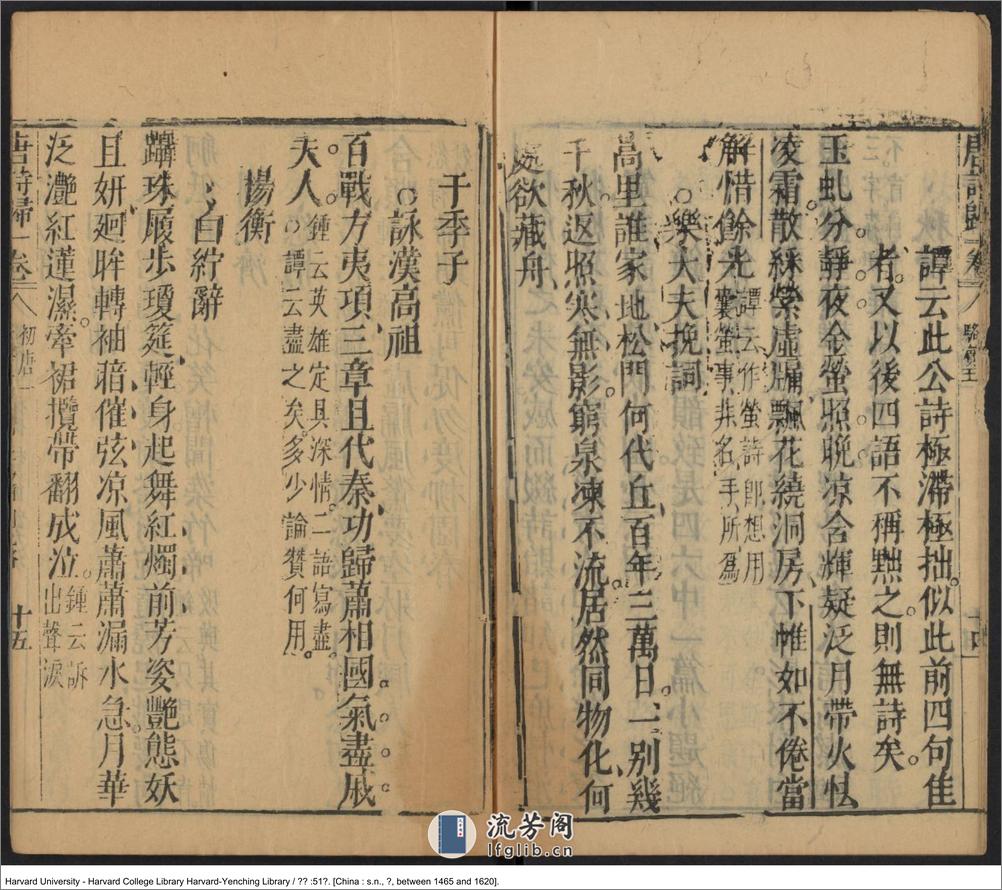 唐詩歸 卷八 駱賓王 十四
譚云此公詩極滯極拙似此前四句佳
者又以後四語不稱黜之則無詩矣
玉虬分靜夜金螢照晚凉含輝疑泛月帶火怯
凌霜散綵縈虛牖飄花繞洞房下帷如不倦當
解惜餘光譚云作螢詩卽想用囊螢事非名手所爲
樂大夫挽詞
蒿里誰家地松門何代丘百年三萬日一別幾
千秋返照寒無影窮泉凍不流居然同物化何
處欲藏舟
于季子
詠漢高祖
百戰方夷項三章且代秦功歸蕭相國氣盡戚
夫人鍾云英雄定具深情二語寫盡○譚云盡之矣多少論贊何用
楊衡
白紵辭
躡珠履步瓊筵輕身起舞紅燭前芳姿艷態妖
且妍廻眸轉袖暗催弦凉風蕭蕭漏水急月華
泛灧紅蓮濕牽裙攬帶翻成泣鍾云訴出聲淚
唐詩歸 卷八 初唐 十五
流芳阁
lfglib.cn
Harvard University - Harvard College Library Harvard-Yenching Library / ?? :51?. [China : s.n., ?, between 1465 and 1620].